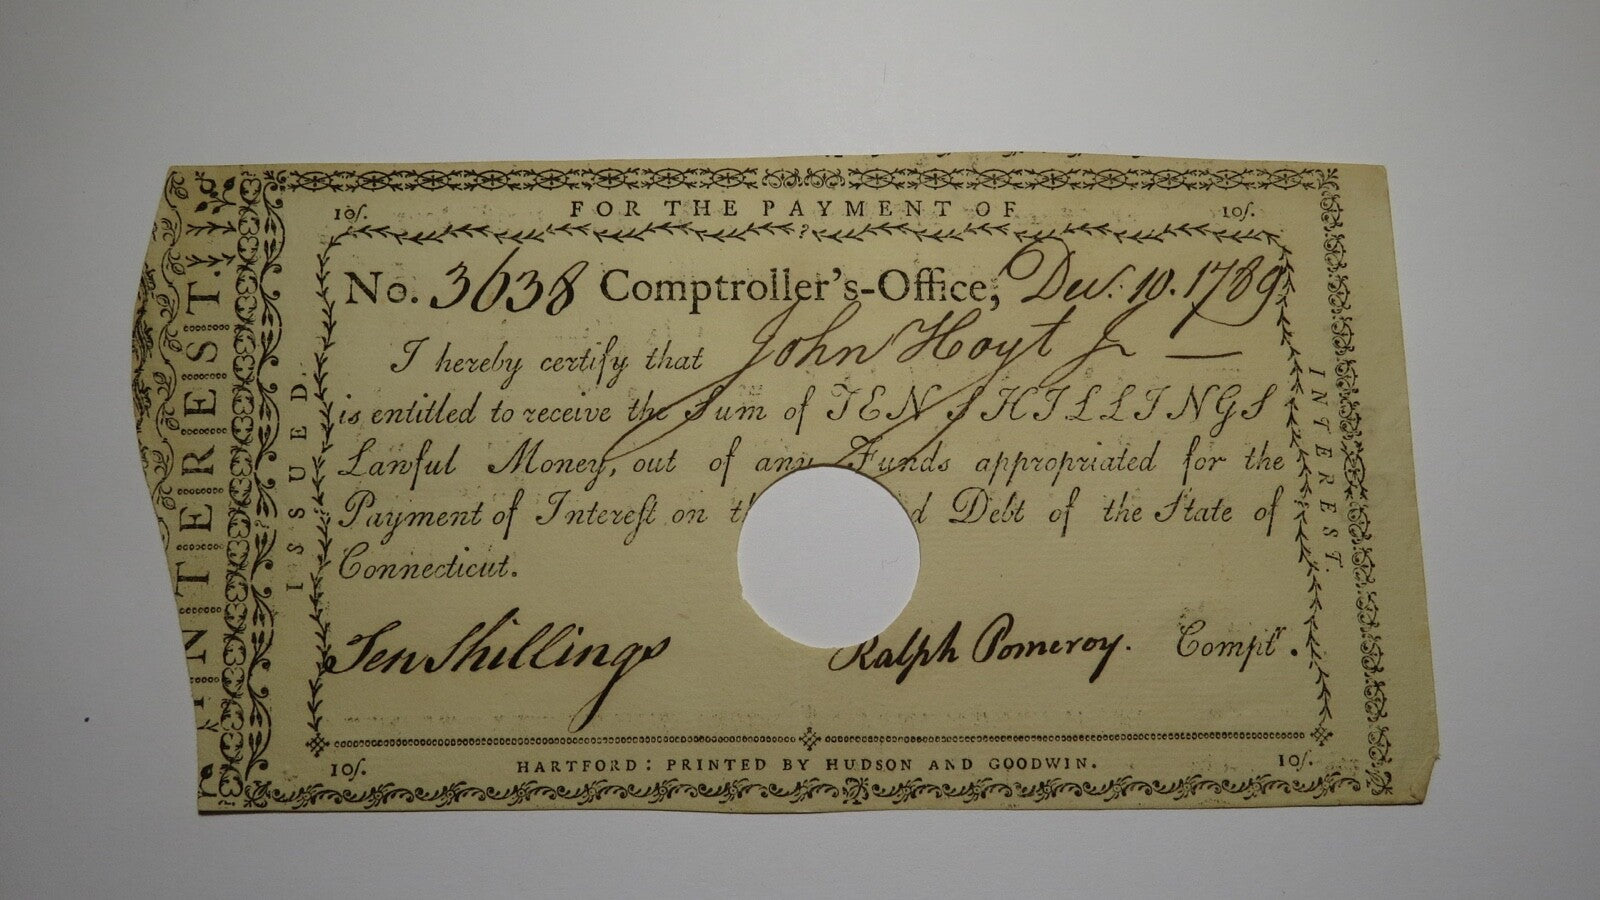 INTEREST.
ISSUED.
10ſ. FOR THE PAYMENT OF 10ſ.
No. 3638 Comptroller's-Office, Dec. 10. 1789
I hereby certify that John Hoyt Jr —
is entitled to receive the Sum of TEN SHILLINGS
Lawful Money, out of any Funds appropriated for the
Payment of Intereſt on d Debt of the State of
Connecticut.
Ten Shillings Ralph Pomeroy. Comptr.
10ſ. HARTFORD: PRINTED BY HUDSON AND GOODWIN. 10ſ.
INTEREST.